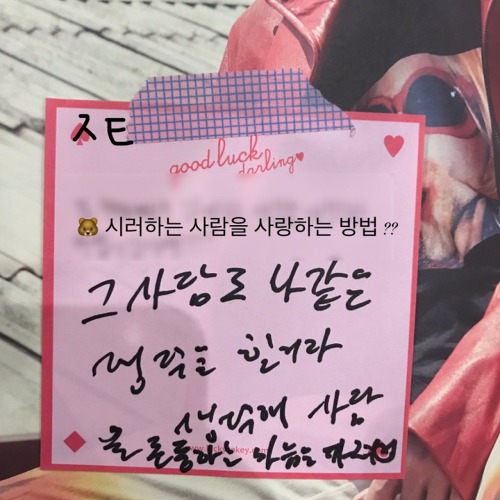 ㅈㅌ
good luck
darling♥
🐻 시러하는 사람을 사랑하는 방법 ??
그 사람도 나같은
생각을 할거라
생각해 사람
을 존중하는 마음을 가고